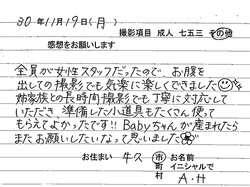 30年11月19日(月)
撮影項目 成人 七五三 その他
感想をお願いします
全員が女性スタッフだったので、お腹を
出しての撮影でも気楽に楽しくできました
姉家族との長時間撮影でも丁寧に対応して
いただき、準備した小道具もたくさん使って
もらえてよかったです!! Babyちゃんが産まれたら
またお願いしたいなって思いました
お住まい 牛久 市 町 村 お名前
イニシャルで
A・H